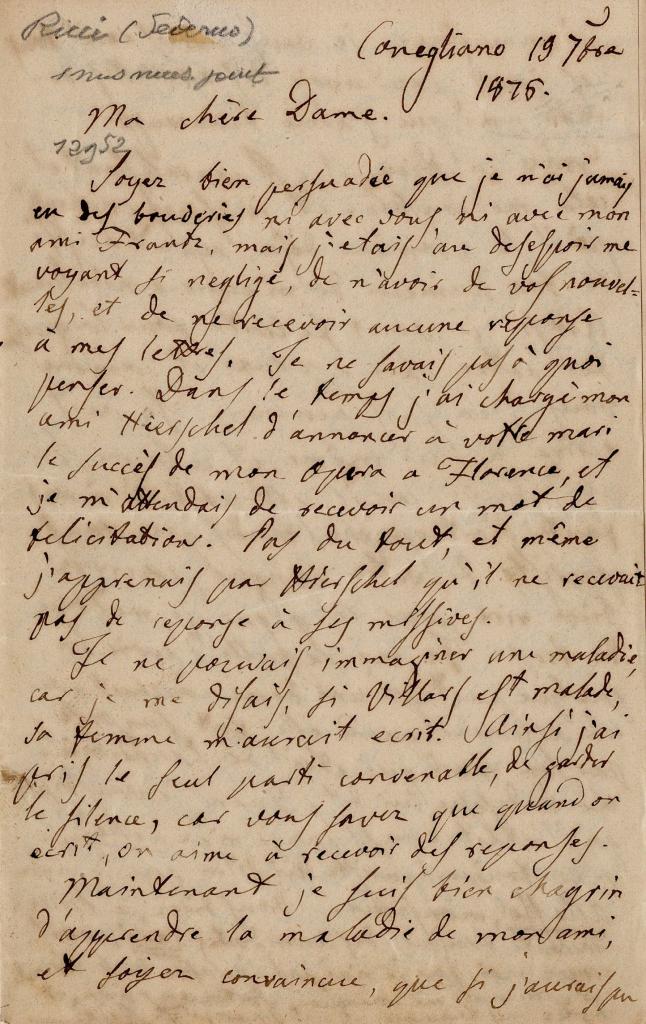 Ricci (Federico)
Conegliano 19 7bre
1876.
Ma chère Dame.
12952
Soyez bien persuadée que je n'ai jamais
eu des bouderies ni avec vous ni avec mon
ami Frantz, mais j'etais au desespoir me
voyant si negligé, de n'avoir de vos nouvel=
les, et de ne recevoir aucune reponse
à mes lettres. Je ne savais pas à quoi
penser. Dans le temps j'ai chargé mon
ami Hierschel d'annoncer à votre mari
le succès de mon opera a Florence, et
je m'attendais de recevoir un mot de
felicitation. Pas du tout, et même
j'apprenais par Hierschel qu'il ne recevait
pas de reponse à ses missives.
Je ne pouvais immaginer une maladie,
car je me disais, si Villars est malade,
sa femme m'aurait ecrit. Ainsi j'ai
pris le seul parti convenable, de garder
le silence, car vous savez que quand on
ecrit, on aime à recevoir des reponses.
Maintenant je suis bien chagrin
d'apprendre la maladie de mon ami,
et soyez convaincue, que si j'aurais pu